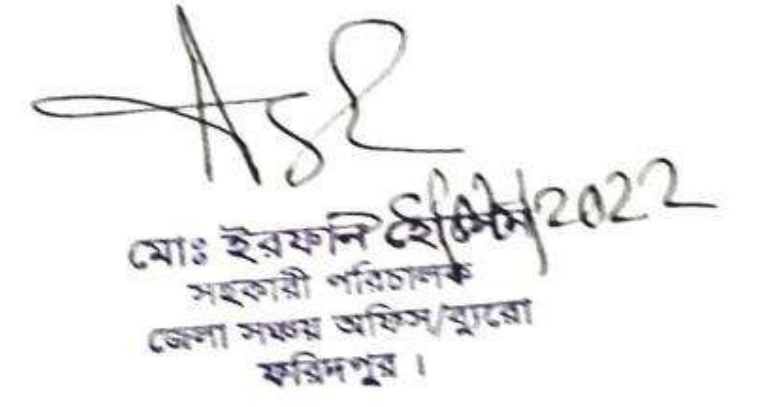 মোঃ ইরফান হোসেন 2022
সহকারী পরিচালক
জেলা সঞ্চয় অফিস/ব্যুরো
ফরিদপুর।